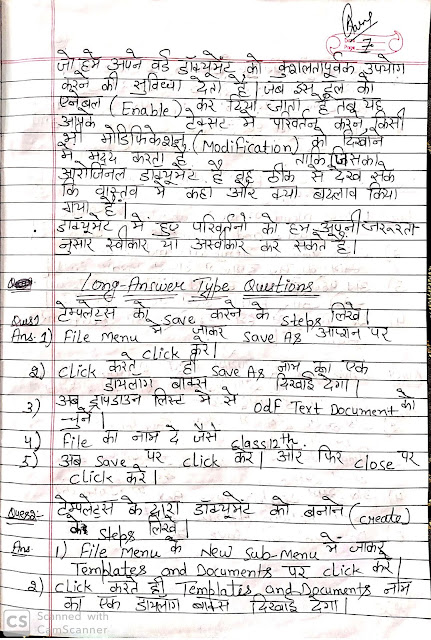 Page
7
जो हमें अपने वर्ड डॉक्यूमेंट को कुशलतापूर्वक उपयोग
करने की सुविधा देता है। जब इस टूल को
एनेबल (Enable) कर दिया जाता है तब यह
आपके टेक्सट में परिवर्तन करने, किसी
भी मोडिफिकेशन (Modification) को दिखाने
में मदद करता है ताकि जिसका
ओरिजिनल डाक्यूमेंट है वह ठीक से देख सके
कि वास्तव में कहा और क्या बदलाव किया
गया है।
डॉक्यूमेंट में हुए परिवर्तनों को हम अपनी जरूरत
नुसार स्वीकार या अस्वीकार कर सकते है।
Long-Answer Type Questions
Ques1 टेम्पलेट्स को save करने के steps लिखे।
Ans. 1) File Menu में जाकर Save As आप्शन पर
click करे।
2) click करते ही Save As नाम का एक
डायलॉग बाक्स दिखाई देगा।
3) अब ड्रापडाउन लिस्ट में से odf Text Document को
चुने।
4) File का नाम दे जैसे class12th.
5) अब save पर click करे। और फिर close पर
click करे।
Ques2- टेम्पलेटस के द्वारा डॉक्यूमेंट को बनाने (create)
के steps लिखे।
Ans. 1) File Menu के New Sub-Menu में जाकर
Templates and Documents पर click करे।
2) click करते ही Templates and Documents नाम
का एक डायलाग बाक्स दिखाई देगा।
CS Scanned with
CamScanner